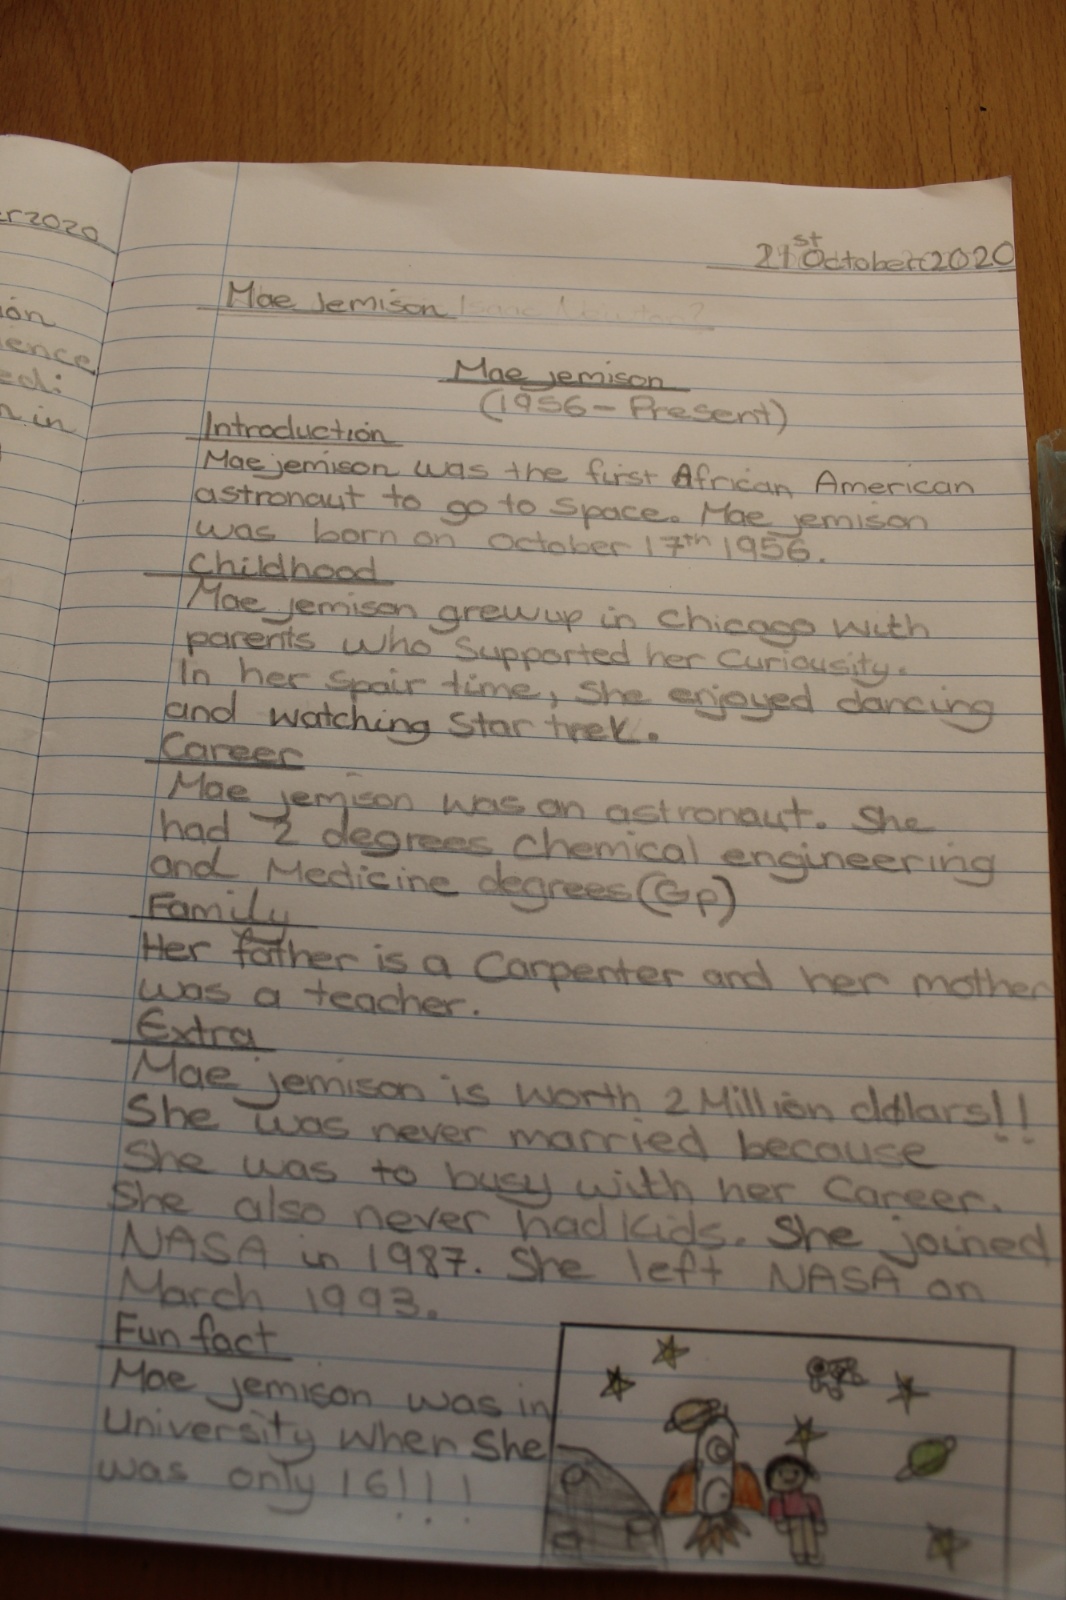 21st October 2020
Mae Jemison
Mae jemison
(1956 - Present)
Introduction
Mae jemison was the first African American
astronaut to go to space. Mae jemison
was born on October 17th 1956.
Childhood
Mae jemison grew up in Chicago with
parents who supported her Curiousity.
In her spair time, she enjoyed dancing
and watching Star trek.
Career
Mae jemison was an astronaut. She
had 2 degrees chemical engineering
and Medicine degrees (Gp)
Family
Her father is a Carpenter and her mother
was a teacher.
Extra
Mae jemison is worth 2 Million dollars!!
She was never married because
She was to busy with her Career.
She also never had kids. She joined
NASA in 1987. She left NASA on
March 1993.
Fun fact
Mae jemison was in
University when She
was only 16!!!
2020
ion
ience
ed:
n in